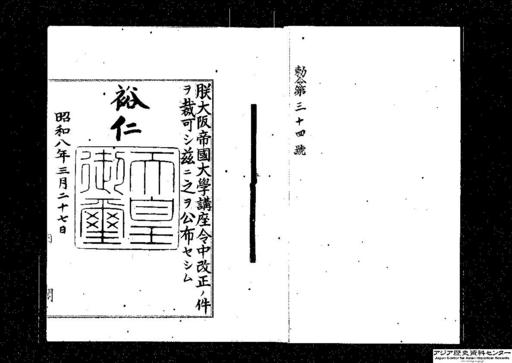 勅令第三十四號
朕大阪帝國大學講座令中改正ノ件
ヲ裁可シ茲ニ之ヲ公布セシム
裕仁
天皇
御璽
昭和八年三月二十七日
アジア歴史資料センター
Japan Center for Asian Historical Records